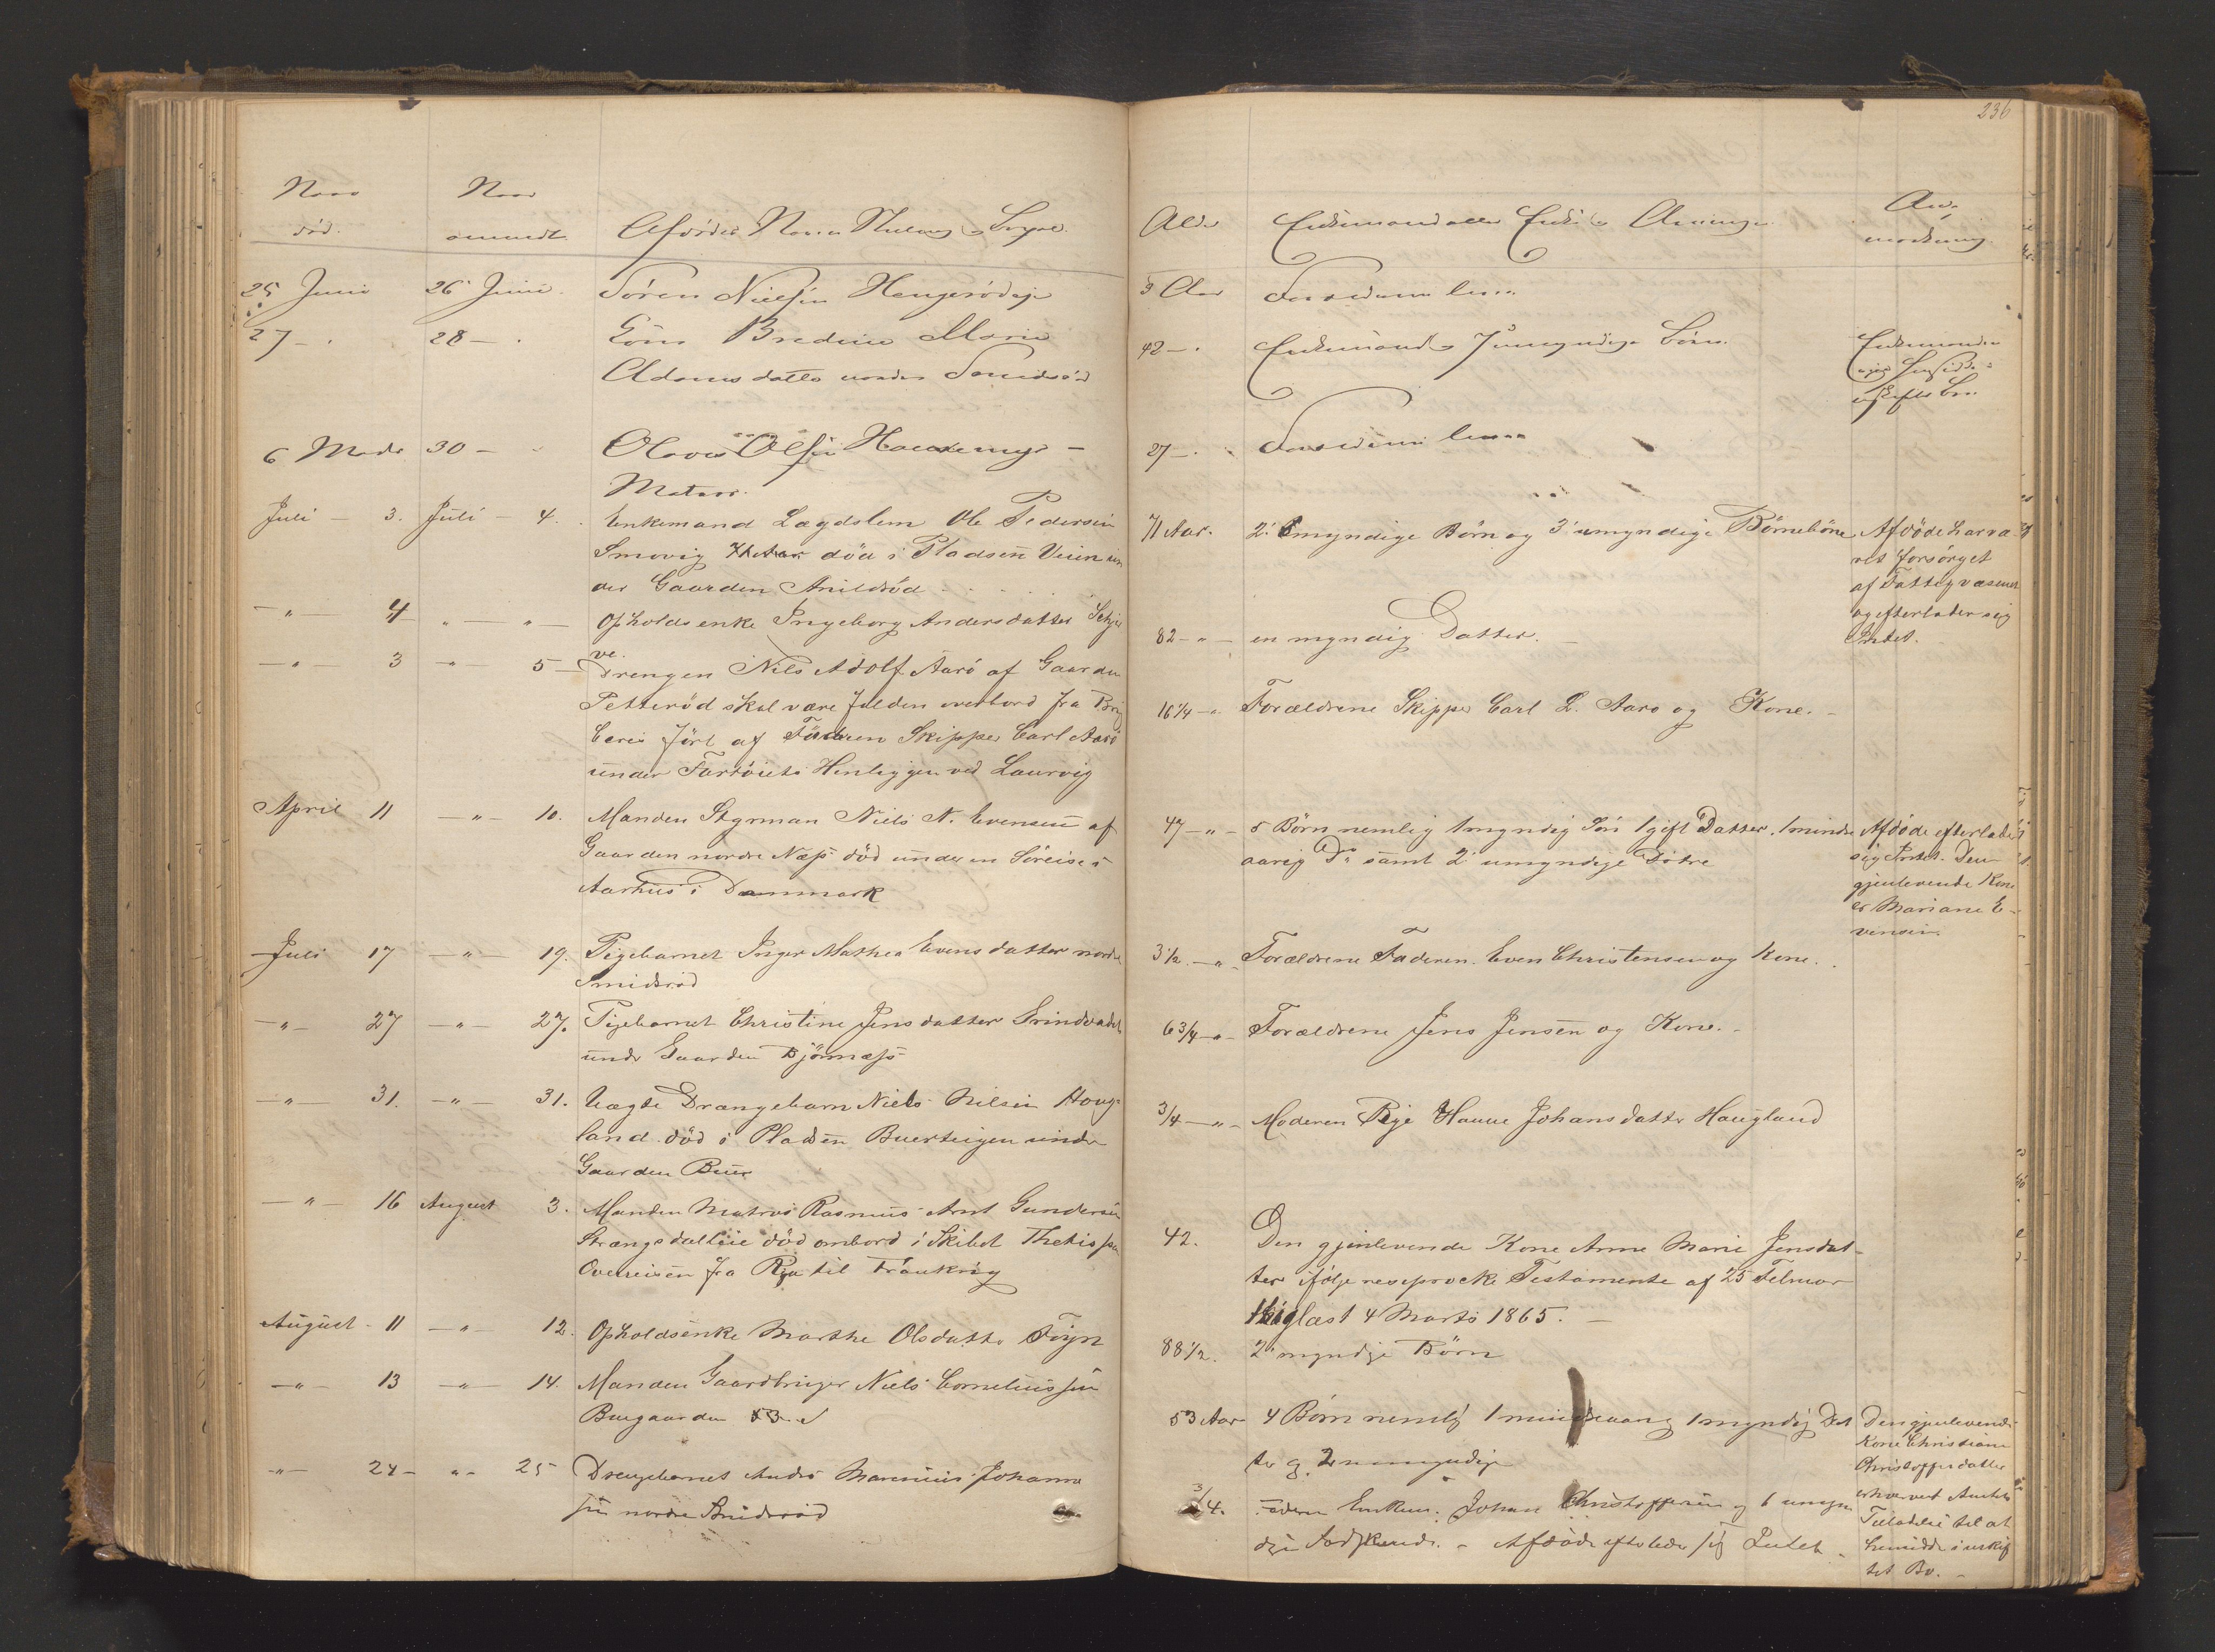 236
Naar
død.
Naar
anmeldt
Afdødes Navn Stilling Bopæl.
Alder
Enkemand eller Enke & Arvinger
An-
mærkning.
25 Juni
26 Juni
Sören Nielsen Hengerödeje
3 Aar
Forældrene
27 -
28 -
Kone Bredine Marie
Adamsdatter nordre Smidsröd
42 -
Enkemand & 7 umyndige Börn
Enkemanden
6 Marts
30 -
Olaves Olsen
Matros.
27 -
Forældrene
Juli - 3.
Juli - 4.
Enkemand Lægdslem Ole Pedersen
Smevig død i Pladsen Veien un
der Gaarden Anildröd
71 Aar.
2 myndige Børn og 3 umyndige Børnebörn
Afdöde har væ
ret forsörget
af Fattigvæsenet
og efterlader sig
Intet.
-"- 4
" - " -
Opholdsenke Ingeborg Andersdatter Schje
ve.
82 - " -
en myndig Datter.
-"- 3
-"- 5 -
Drengen Nils Adolf Aarö af Gaarden
Petteröd skal være falden overbord fra Brig
Ceres fört af Faderen Skipper Carl Aarö
under Fartöiets Henliggen ved Laurvig
16 1/4 - "
Forældrene Skipper Carl L. Aarö og Kone. -
April 11
-"- 10.
Manden Styrman Niels N. Evensen af
Gaarden nordre Næss död under en Söreise i
Aarhus i Danmark
47 - " -
5 Börn nemlig 1 myndig Sön 1 gift Datter. 1 mindre
aarig Do samt 2 umyndige Dötre
Afdöde efterlader
sig Intet. Den
gjenlevende Kone
er Mariane E-
vensen.
Juli 17
-"- 19.
Pigebarnet Inger Mathea Evensdatter nordre
Smidsröd
3 1/2 - "
Forældrene Faderen Even Christensen og Kone.
-"- 27
-"- 27.
Pigebarnet Christine Jensdatter Grindvadet
under Gaarden Björnnæss
6 3/4 - "
Forældrene Jens Jensen og Kone. -
-"- 31.
-"- 31.
Uægte Drængebarn Niels Nilsen Houg-
land död i Pladsen Buerteigen under
Gaarden Buer
3/4 - " -
Moderen Pige Hanne Johansdatter Haugland
-"- 16
August 3.
Manden Matros Rasmus Arnt Gundersen
Strængsdalleie död ombord i Skibet Thetis paa
Overreisen fra Riga til Frankrig
42.
Den gjenlevende Kone Anne Marie Jensdat-
ter ifölge resiprocke Testamente af 25 Februar
thinglæst 4 Marts 1865. -
August - 11
-"- 12.
Opholdsenke Marthe Olsdatter Föyn
88 1/2.
2 myndige Börn
-"- 13
-"- 14.
Manden Gaardbruger Niels Corneliussen
Buegaarden
53 Aar
4 Börn nemlig 1 mindreaarig 1 myndig Dat
ter og 2 umyndige
Den gjenlevende
Kone Christiane
Christoffersdatter
erhvervet Amtets
Tilladelse til at
hensidde i uskif
tet Bo. -
-"- 24 -
"- 25
Drengebarnet Andrs Marenius Johanne
sen nordre Smidsröd
3/4.
Faderen Enkem. Johan Christoffersen og 6 umyn
dige Södskende. - Afdöde efterlader sig Intet.